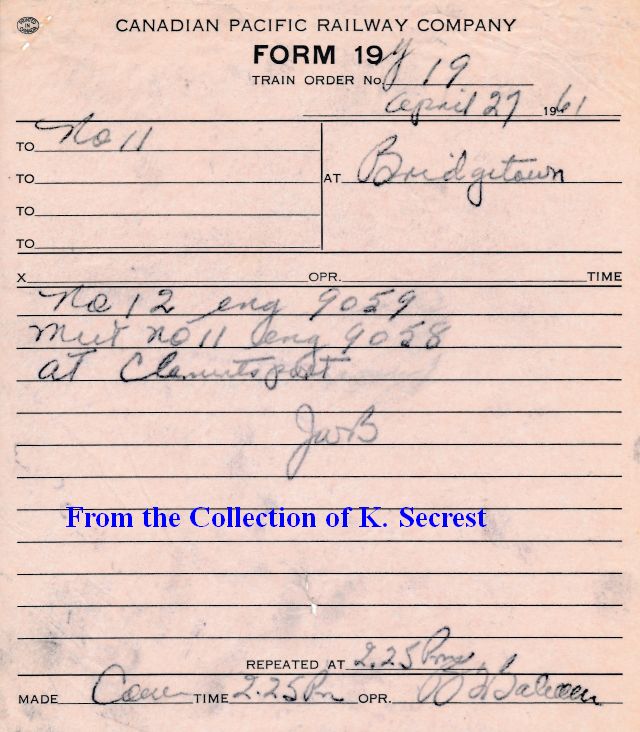 PRINTED IN CANADA
CANADIAN PACIFIC RAILWAY COMPANY
FORM 19 Y
TRAIN ORDER No. 19
April 27 1961
TO No 11
TO AT Bridgetown
TO
TO
X OPR. TIME
No 12 eng 9059
Meet no 11 eng 9058
at Clementsport
JWB
From the Collection of K. Secrest
REPEATED AT 2.25 Pm
MADE Com TIME 2.25 Pm OPR.